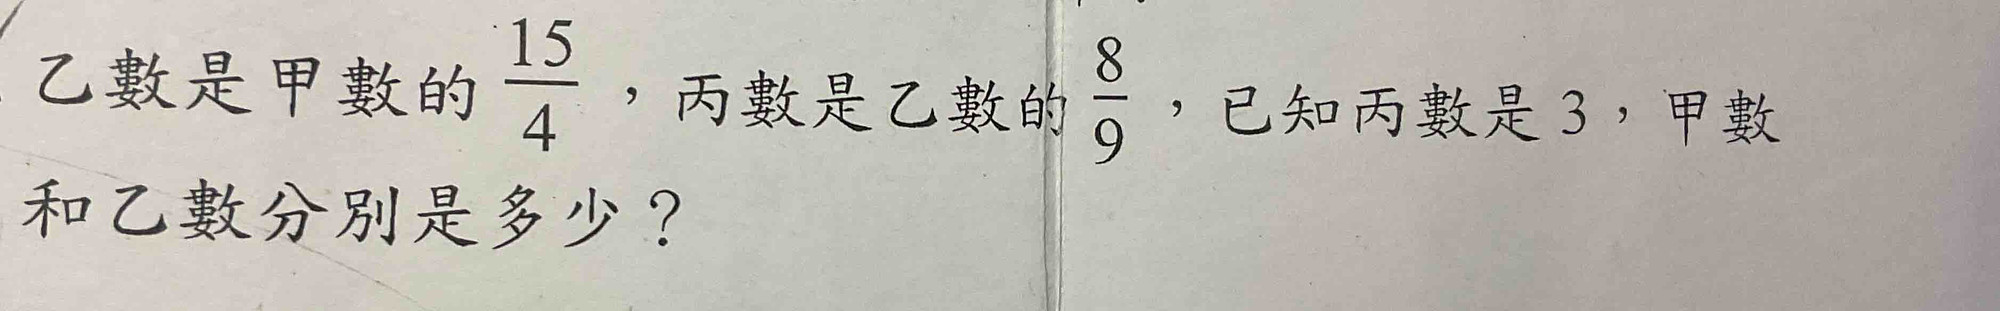 乙數是甲數的 15/4，丙數是乙數的 8/9，已知丙數是 3，甲數
和乙數分別是多少？